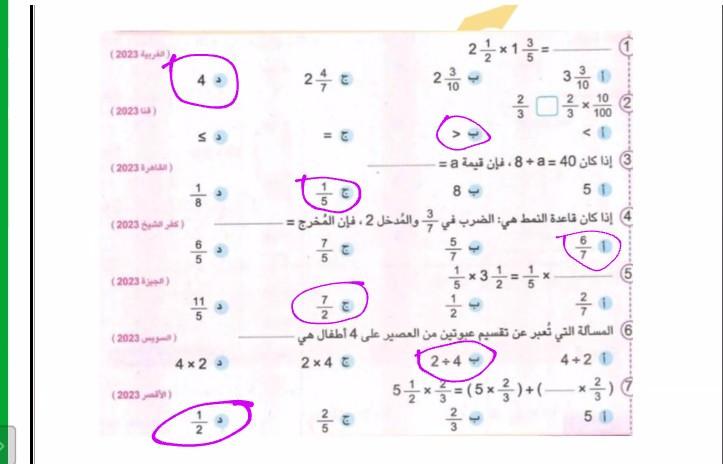 ① 2 1/2 × 1 3/5 = ______ (الغربية 2023)
أ 3 3/10 ب 2 3/10 ج 2 4/7 د 4
② 2/3 × 10/100 □ 2/3 (قنا 2023)
أ > ب < ج = د ≤
③ إذا كان 40 = 8 ÷ a، فإن قيمة a = ______ (القاهرة 2023)
أ 5 ب 8 ج 1/5 د 1/8
④ إذا كان قاعدة النمط هي: الضرب في 3/7 والمُدخل 2، فإن المُخرج = ______ (كفر الشيخ 2023)
أ 6/7 ب 5/7 ج 7/5 د 6/5
⑤ 1/5 × 3 1/2 = 1/5 × ______ (الجيزة 2023)
أ 2/7 ب 1/2 ج 7/2 د 11/5
⑥ المسألة التي تُعبر عن تقسيم عبوتين من العصير على 4 أطفال هي ______ (السويس 2023)
أ 4 ÷ 2 ب 2 ÷ 4 ج 2 × 4 د 4 × 2
⑦ 5 1/2 × 2/3 = (5 × 2/3) + (____ × 2/3) (الأقصر 2023)
أ 5 ب 2/3 ج 2/5 د 1/2